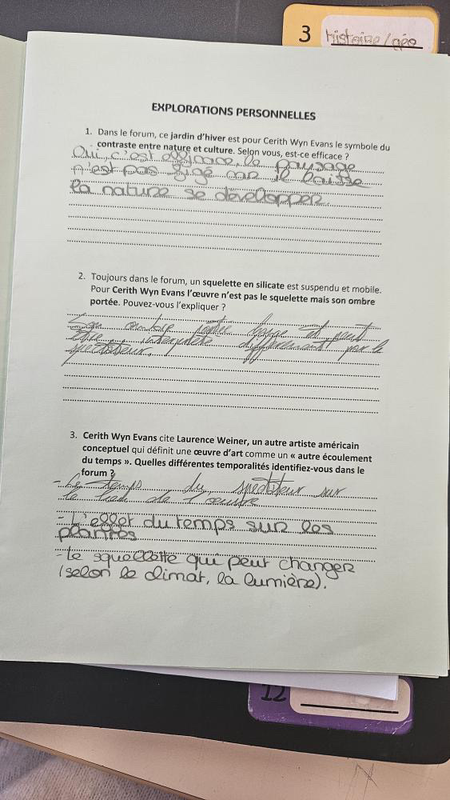 3 histoire/géo
EXPLORATIONS PERSONNELLES
1. Dans le forum, ce jardin d'hiver est pour Cerith Wyn Evans le symbole du
contraste entre nature et culture. Selon vous, est-ce efficace ?
Oui, c'est efficace, le paysage
n'est pas figé car il laisse
la nature se développer.
2. Toujours dans le forum, un squelette en silicate est suspendu et mobile.
Pour Cerith Wyn Evans l'œuvre n'est pas le squelette mais son ombre
portée. Pouvez-vous l'expliquer ?
Son ombre bouge et peut
être interprété différemment par le
spectateur.
3. Cerith Wyn Evans cite Laurence Weiner, un autre artiste américain
conceptuel qui définit une œuvre d'art comme un « autre écoulement
du temps ». Quelles différentes temporalités identifiez-vous dans le
forum ?
- Le temps du spectateur sur
le de l'œuvre
- L'effet du temps sur les
plantes
- Le squelette qui peut changer
(selon le climat, la lumière).
12